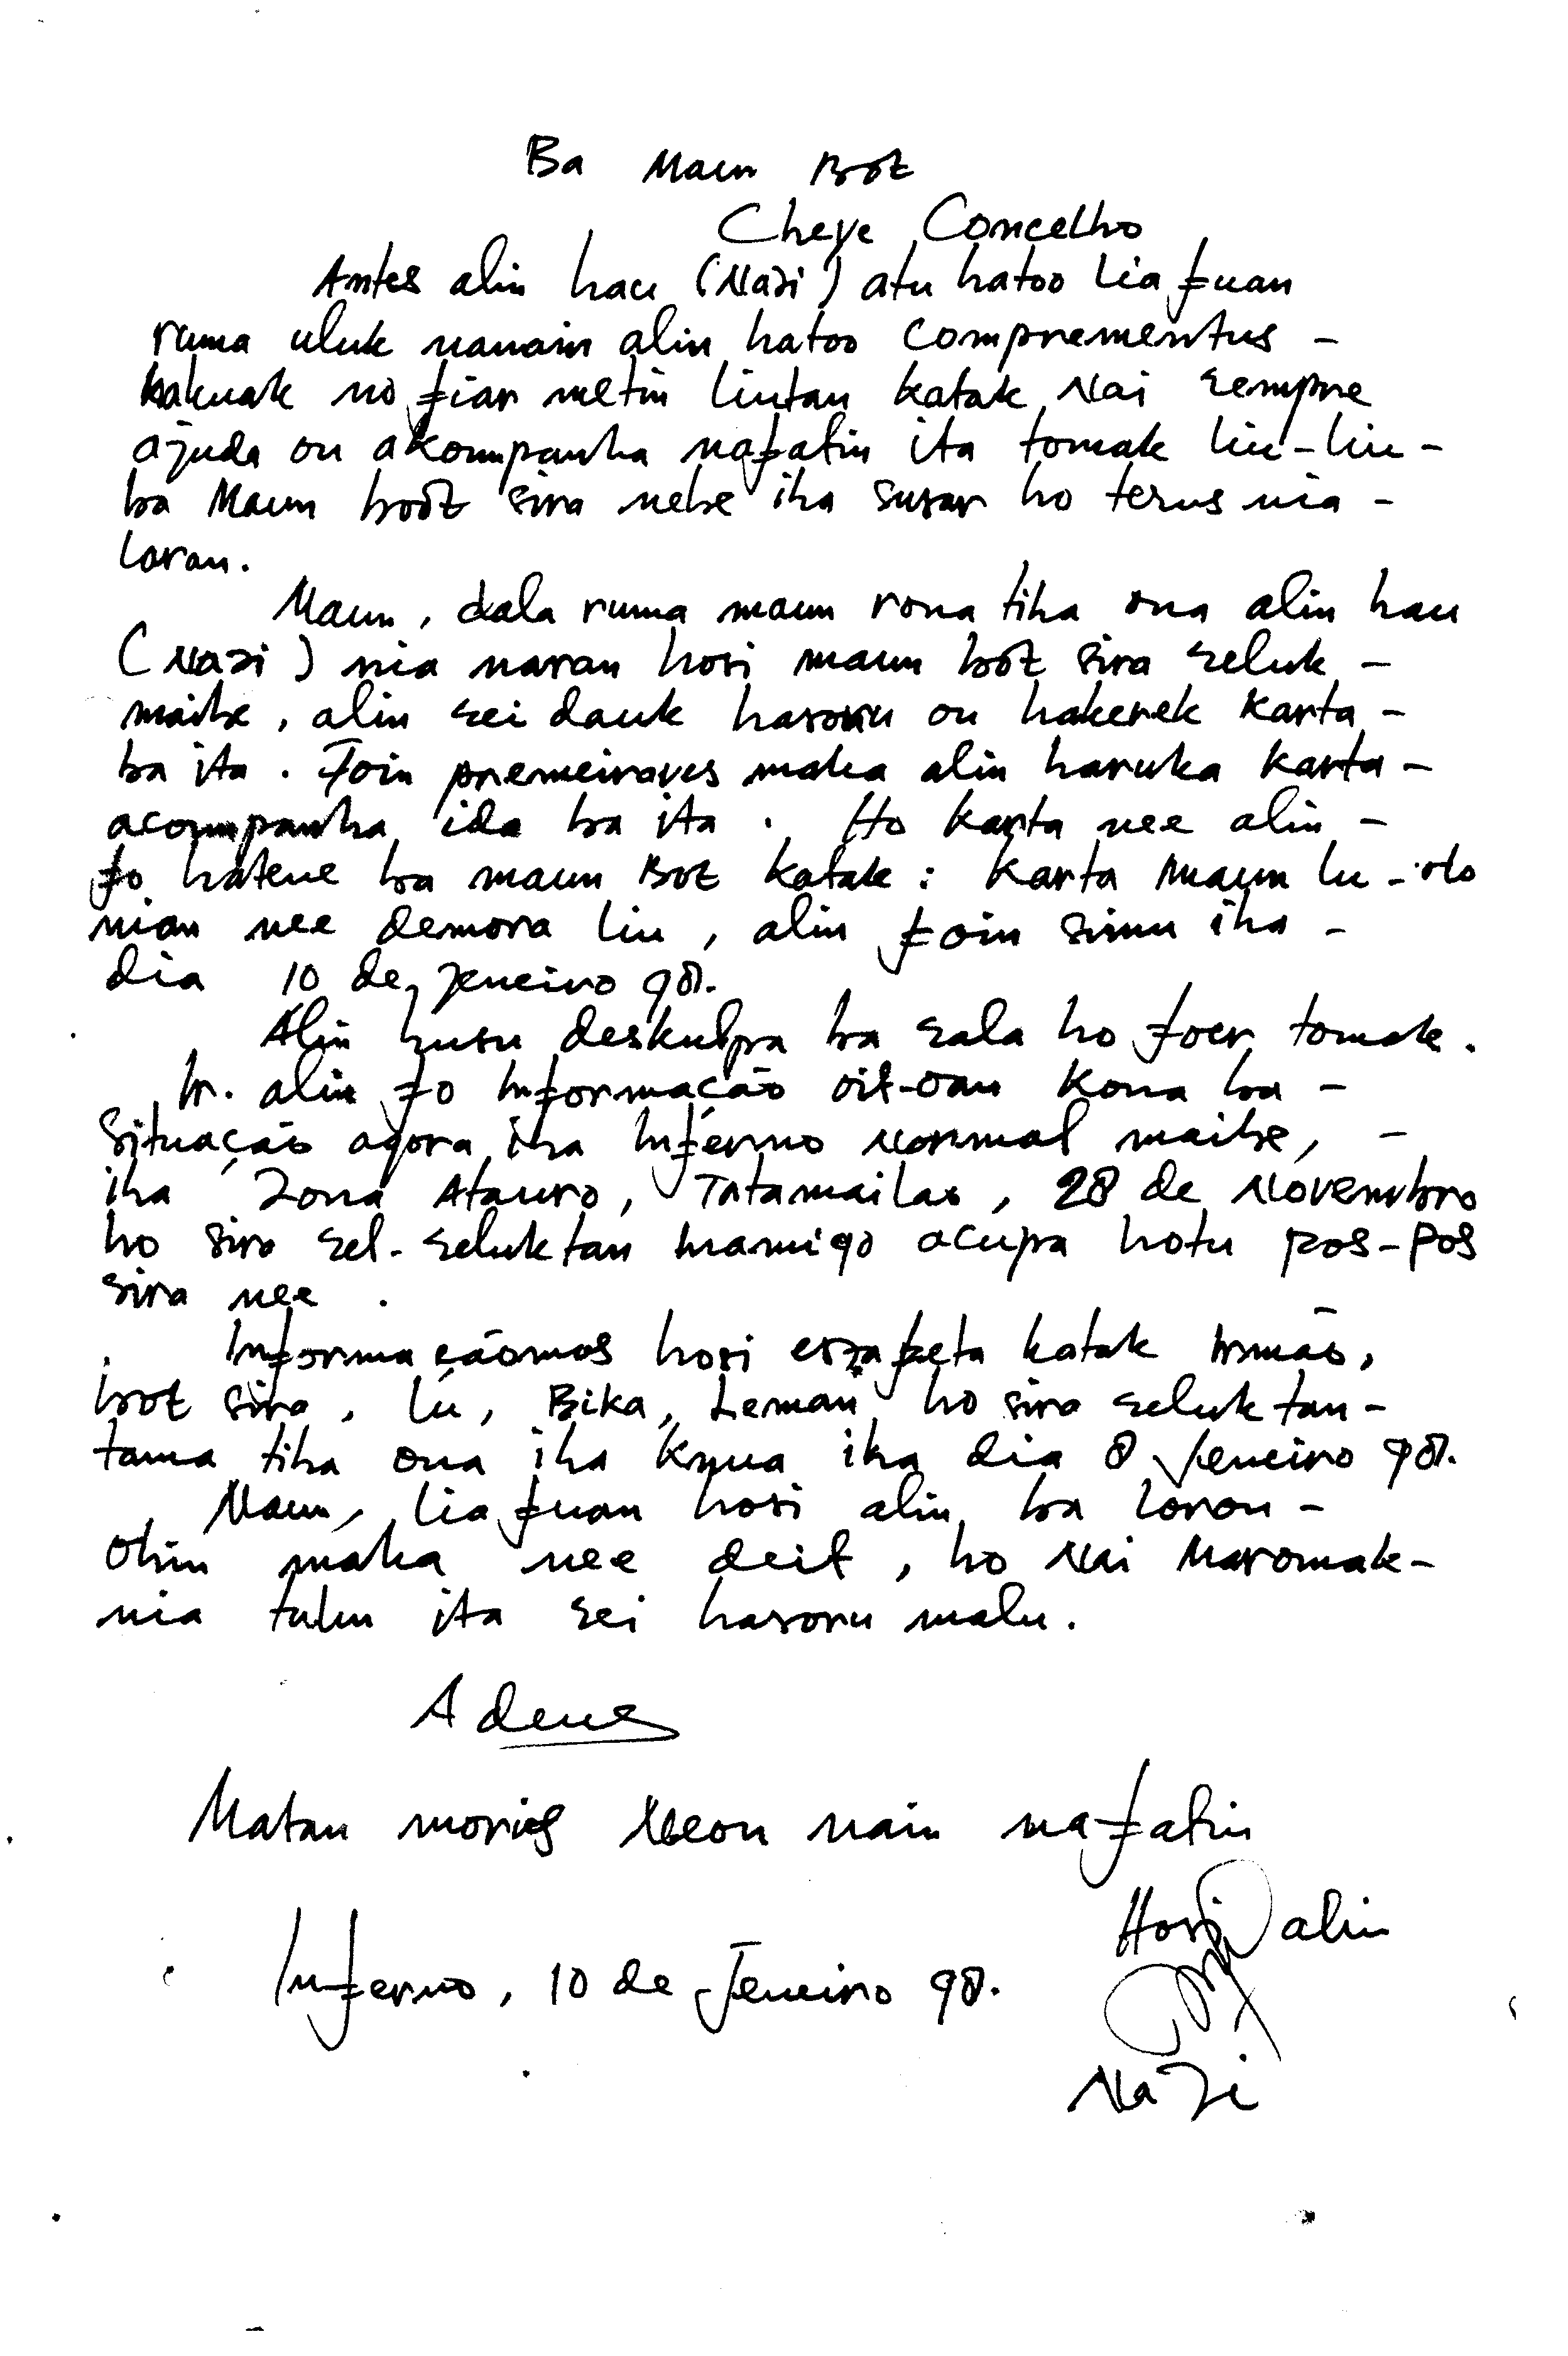 Ba Maun Bot
Cheye Concelho
Antes alin hau (Nazi) atu hatoo lia fuan
ruma uluk nanain alin hatoo comprementus -
hakuak no fiar metin liutan katak Nai sempre
ajuda ou akompanha nafatin ita tomak liu-liu -
ba Maun boot sira nebe iha susar ho terus nia -
laran.
Maun, dala ruma maun rona tiha ona alin hau
(Nazi) nia naran hosi maun bot sira seluk -
maibe, alin sei dauk hasoru ou hakerek karta -
ba ita. Foin premeiraves maka alin haruka karta -
acompanha ida ba ita. Ho karta nee alin -
fo hatene ba maun Bot katak: karta maun lu-olo
nian nee demora liu, alin foin simu iha -
dia 10 de Jeneiro 98.
Alin husu deskulpa ba sala ho foer tomak.
Ir. alin fo Informação oit-oan kona ba -
situação agora iha Inférno Normal maibe, -
iha Zona Atauro, Tatamailao, 28 de Novembro
ho sira sel-seluk tan Inamigo acupa hotu pos-pos
sira nee.
Informaçãomos hosi estafeta katak Irmão,
bot sira, Lú, Bika, Leman ho sira seluk tan -
tama tiha ona iha knua iha dia 8 Jeneiro 98.
Maun, lia fuan hosi alin ba loron -
Ohin maka nee deit, ho Nai Maromak -
nia tulun ita sei hasoru malu.
Adeus
Matan moris Neon nain nafatin
Hosi alin
Inferno, 10 de Jeneiro 98.
Nazi